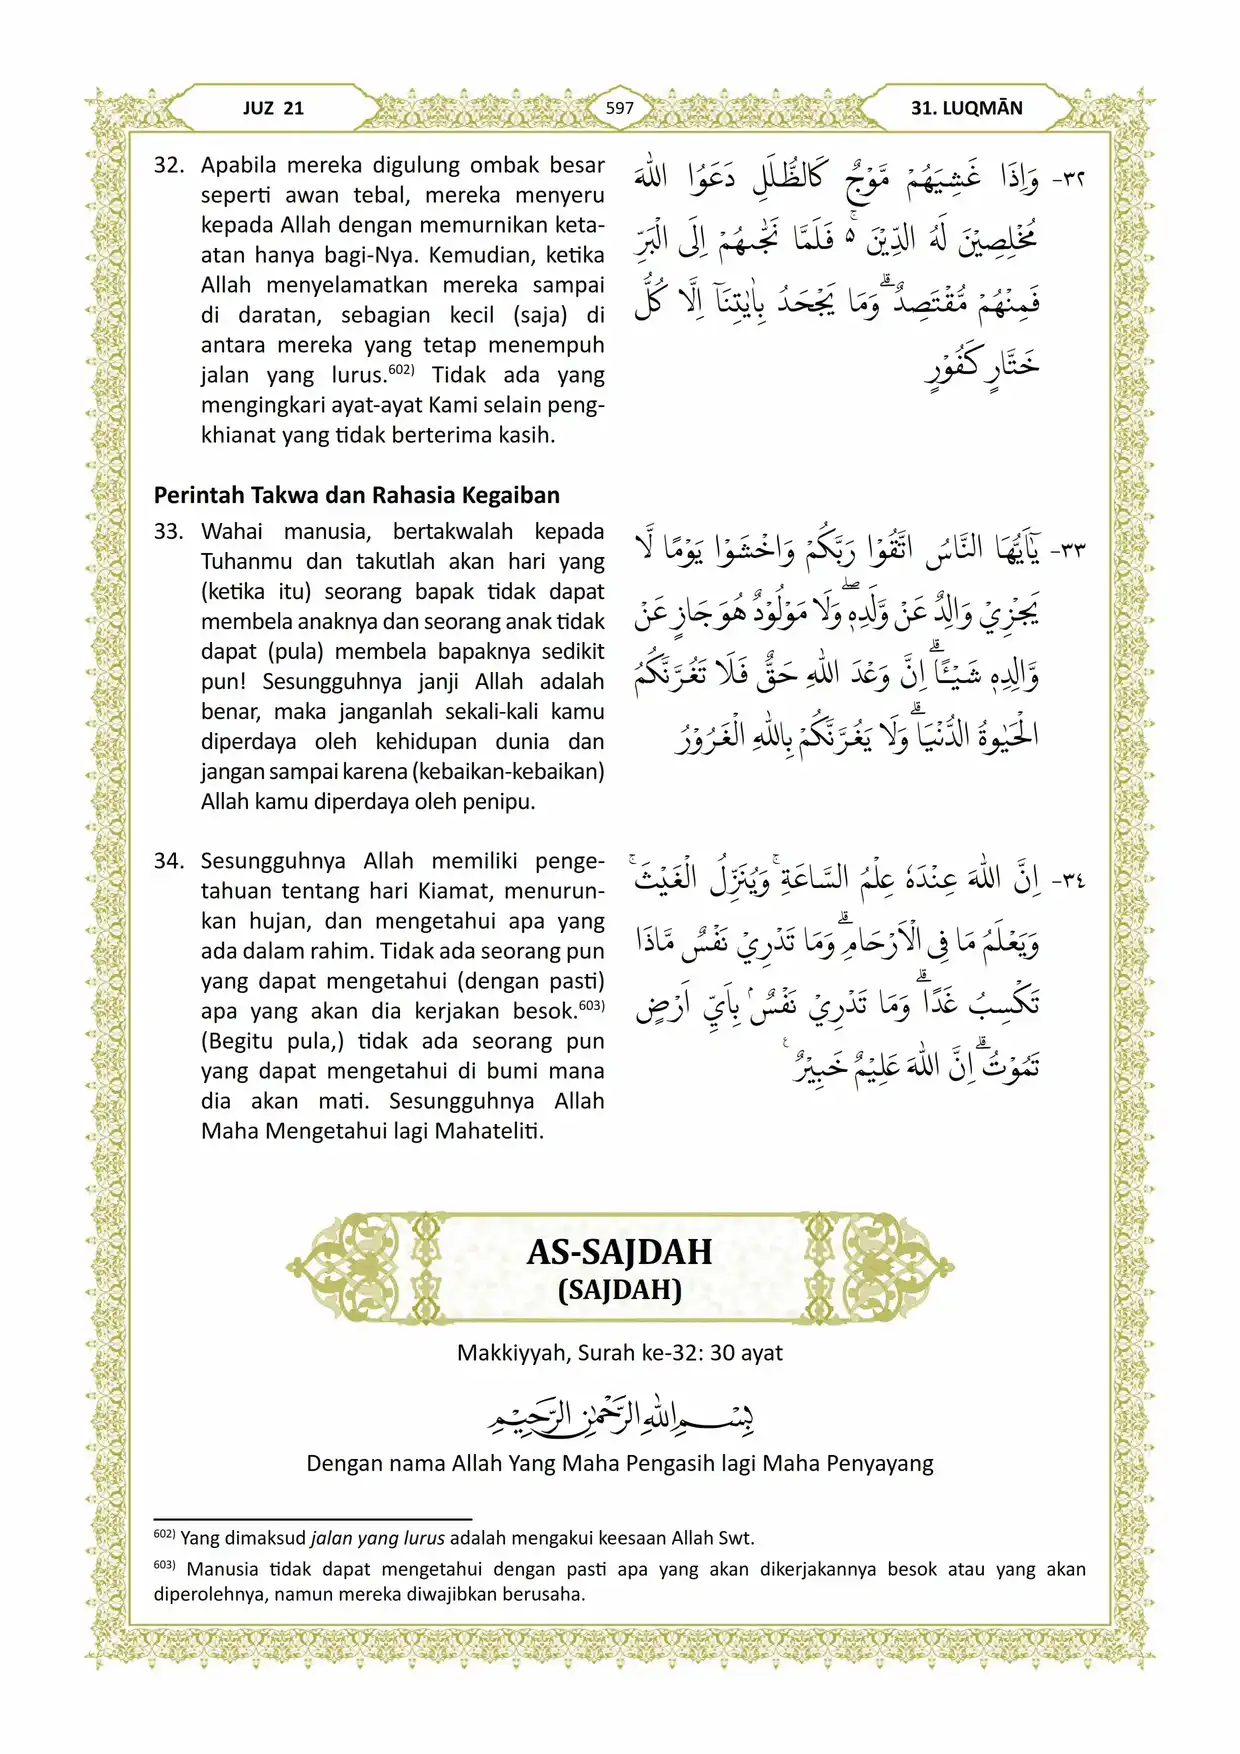 JUZ 21
597
31. LUQMĀN
32. Apabila mereka digulung ombak besar
seperti awan tebal, mereka menyeru
kepada Allah dengan memurnikan keta-
atan hanya bagi-Nya. Kemudian, ketika
Allah menyelamatkan mereka sampai
di daratan, sebagian kecil (saja) di
antara mereka yang tetap menempuh
jalan yang lurus.602) Tidak ada yang
mengingkari ayat-ayat Kami selain peng-
khianat yang tidak berterima kasih.
٣٢- وَاِذَا غَشِيَهُمْ مَّوْجٌ كَالظُّلَلِ دَعَوُا اللّٰهَ
مُخْلِصِيْنَ لَهُ الدِّيْنَ ەۚ فَلَمَّا نَجّٰىهُمْ اِلَى الْبَرِّ
فَمِنْهُمْ مُّقْتَصِدٌۗ وَمَا يَجْحَدُ بِاٰيٰتِنَآ اِلَّا كُلُّ
خَتَّارٍ كَفُوْرٍ
Perintah Takwa dan Rahasia Kegaiban
33. Wahai manusia, bertakwalah kepada
Tuhanmu dan takutlah akan hari yang
(ketika itu) seorang bapak tidak dapat
membela anaknya dan seorang anak tidak
dapat (pula) membela bapaknya sedikit
pun! Sesungguhnya janji Allah adalah
benar, maka janganlah sekali-kali kamu
diperdaya oleh kehidupan dunia dan
jangan sampai karena (kebaikan-kebaikan)
Allah kamu diperdaya oleh penipu.
٣٣- يٰٓاَيُّهَا النَّاسُ اتَّقُوْا رَبَّكُمْ وَاخْشَوْا يَوْمًا لَّا
يَجْزِيْ وَالِدٌ عَنْ وَّلَدِهٖۖ وَلَا مَوْلُوْدٌ هُوَ جَازٍ عَنْ
وَّالِدِهٖ شَيْـًٔاۗ اِنَّ وَعْدَ اللّٰهِ حَقٌّ فَلَا تَغُرَّنَّكُمُ
الْحَيٰوةُ الدُّنْيَاۗ وَلَا يَغُرَّنَّكُمْ بِاللّٰهِ الْغَرُوْرُ
34. Sesungguhnya Allah memiliki penge-
tahuan tentang hari Kiamat, menurun-
kan hujan, dan mengetahui apa yang
ada dalam rahim. Tidak ada seorang pun
yang dapat mengetahui (dengan pasti)
apa yang akan dia kerjakan besok.603)
(Begitu pula,) tidak ada seorang pun
yang dapat mengetahui di bumi mana
dia akan mati. Sesungguhnya Allah
Maha Mengetahui lagi Mahateliti.
٣٤- اِنَّ اللّٰهَ عِنْدَهٗ عِلْمُ السَّاعَةِۚ وَيُنَزِّلُ الْغَيْثَۚ
وَيَعْلَمُ مَا فِى الْاَرْحَامِۗ وَمَا تَدْرِيْ نَفْسٌ مَّاذَا
تَكْسِبُ غَدًاۗ وَمَا تَدْرِيْ نَفْسٌۢ بِاَيِّ اَرْضٍ
تَمُوْتُۗ اِنَّ اللّٰهَ عَلِيْمٌ خَبِيْرٌ ࣖ
AS-SAJDAH
(SAJDAH)
Makkiyyah, Surah ke-32: 30 ayat
بِسْمِ اللّٰهِ الرَّحْمٰنِ الرَّحِيْمِ
Dengan nama Allah Yang Maha Pengasih lagi Maha Penyayang
602) Yang dimaksud jalan yang lurus adalah mengakui keesaan Allah Swt.
603) Manusia tidak dapat mengetahui dengan pasti apa yang akan dikerjakannya besok atau yang akan
diperolehnya, namun mereka diwajibkan berusaha.